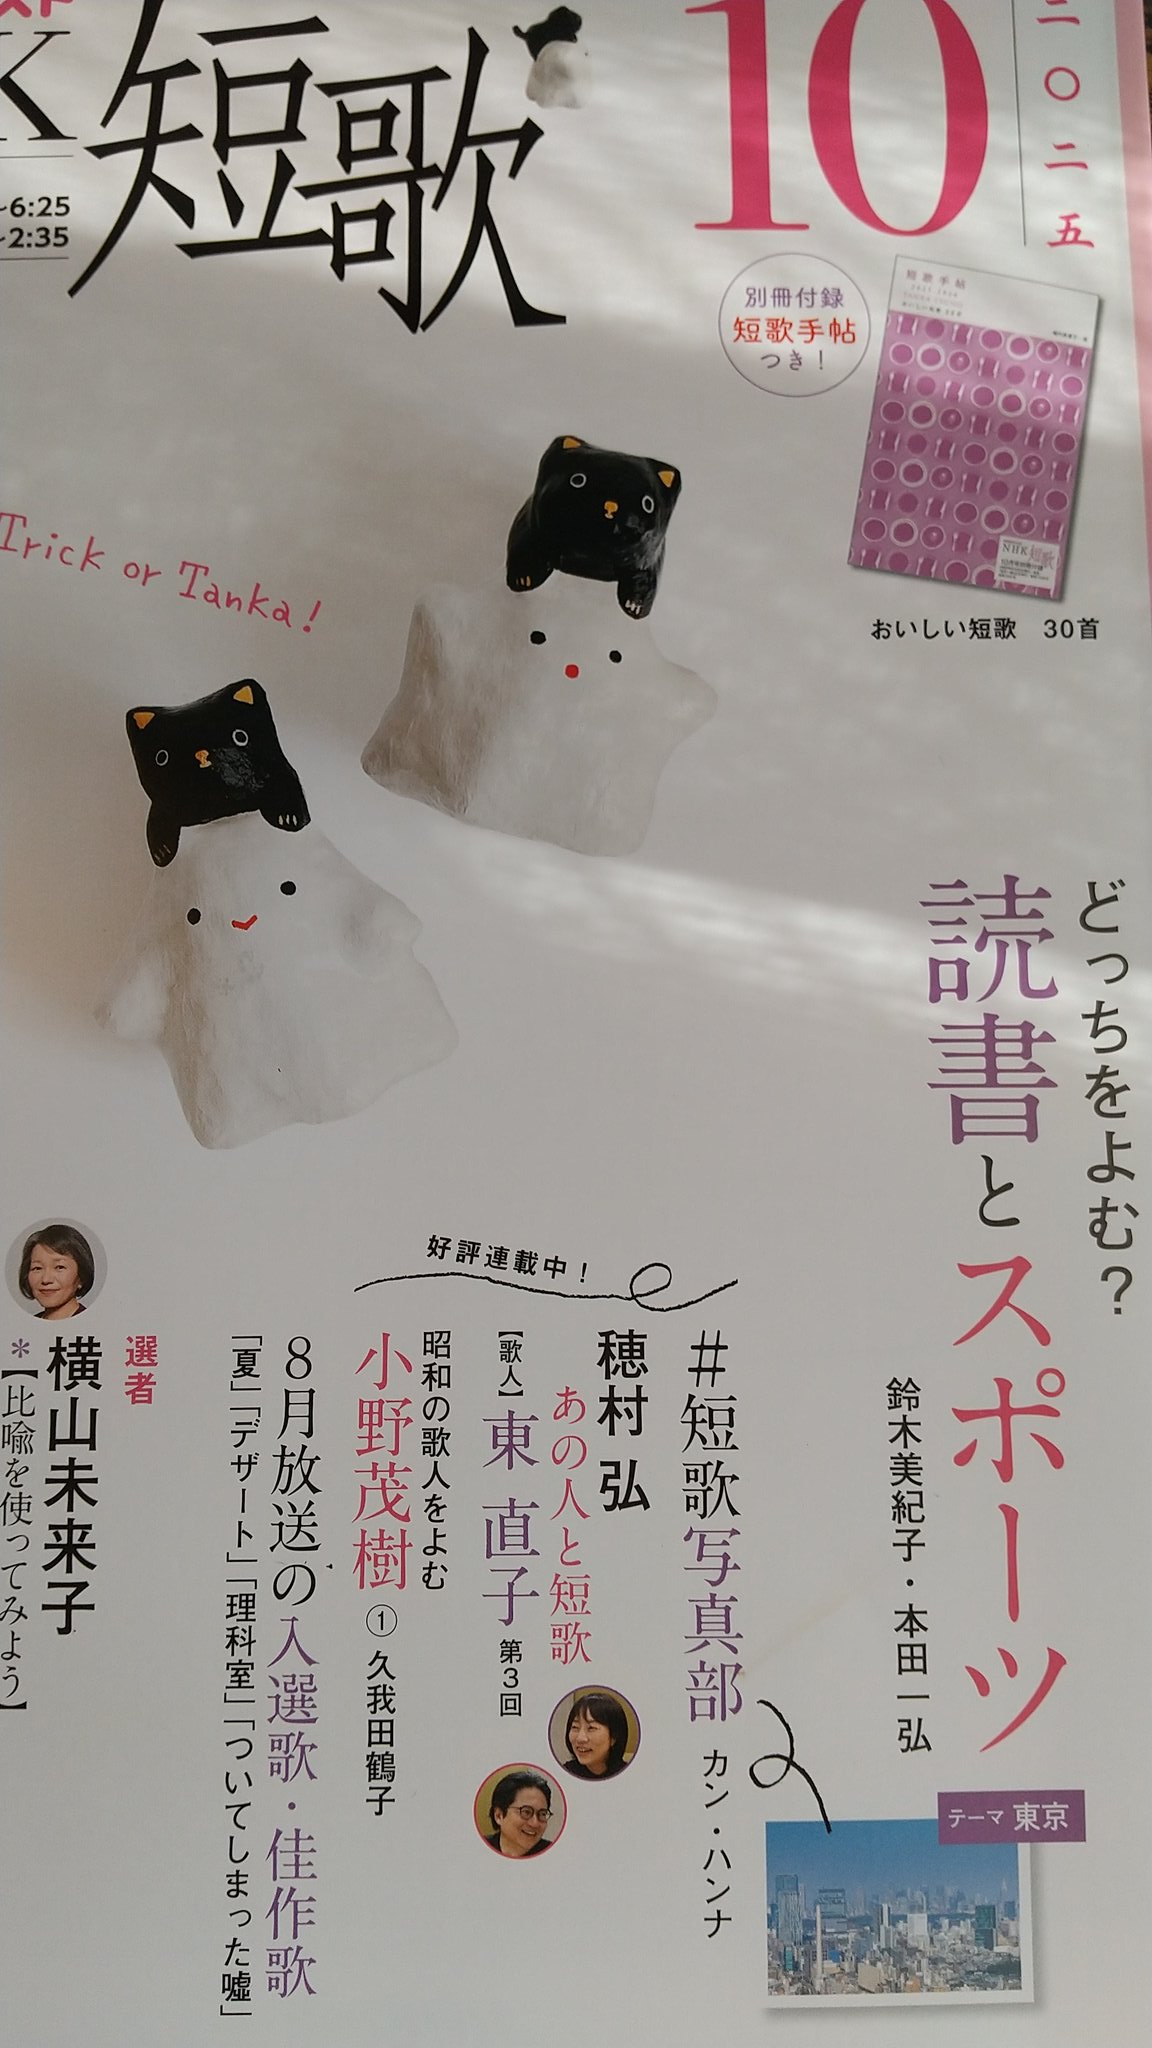 K 短歌
~6:25
~2:35
10
二〇二五
別冊付録
短歌手帖
つき！
短歌手帖
NHK短歌
おいしい短歌 30首
Trick or Tanka!
どっちをよむ？
読書とスポーツ
鈴木美紀子・本田一弘
テーマ 東京
#短歌写真部 カン・ハンナ
好評連載中！
穂村 弘
あの人と短歌
【歌人】東 直子 第3回
昭和の歌人をよむ
小野茂樹 ① 久我田鶴子
8月放送の入選歌・佳作歌
「夏」「デザート」「理科室」「ついてしまった嘘」
選者
横山未来子
*【比喩を使ってみよう】